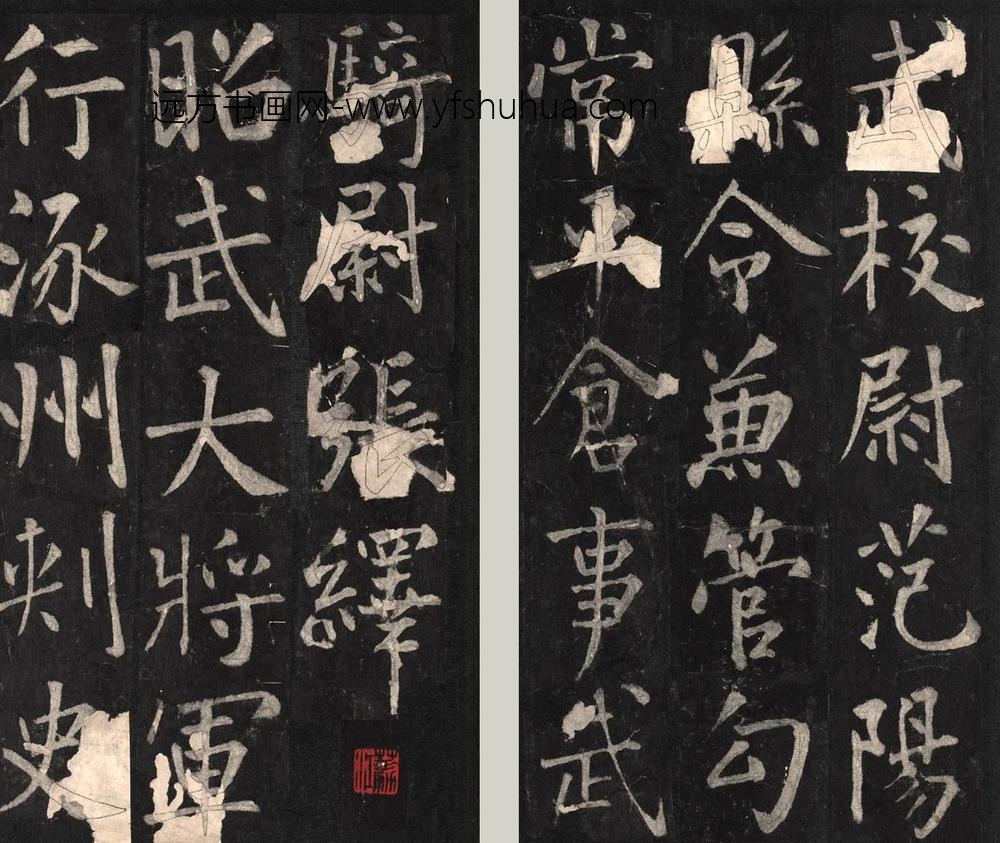 武校尉范陽
縣令兼管勾
常平倉事武
騎尉張繹
昭武大將軍
行涿州刺史
远方书画网-www.yfshuhua.com